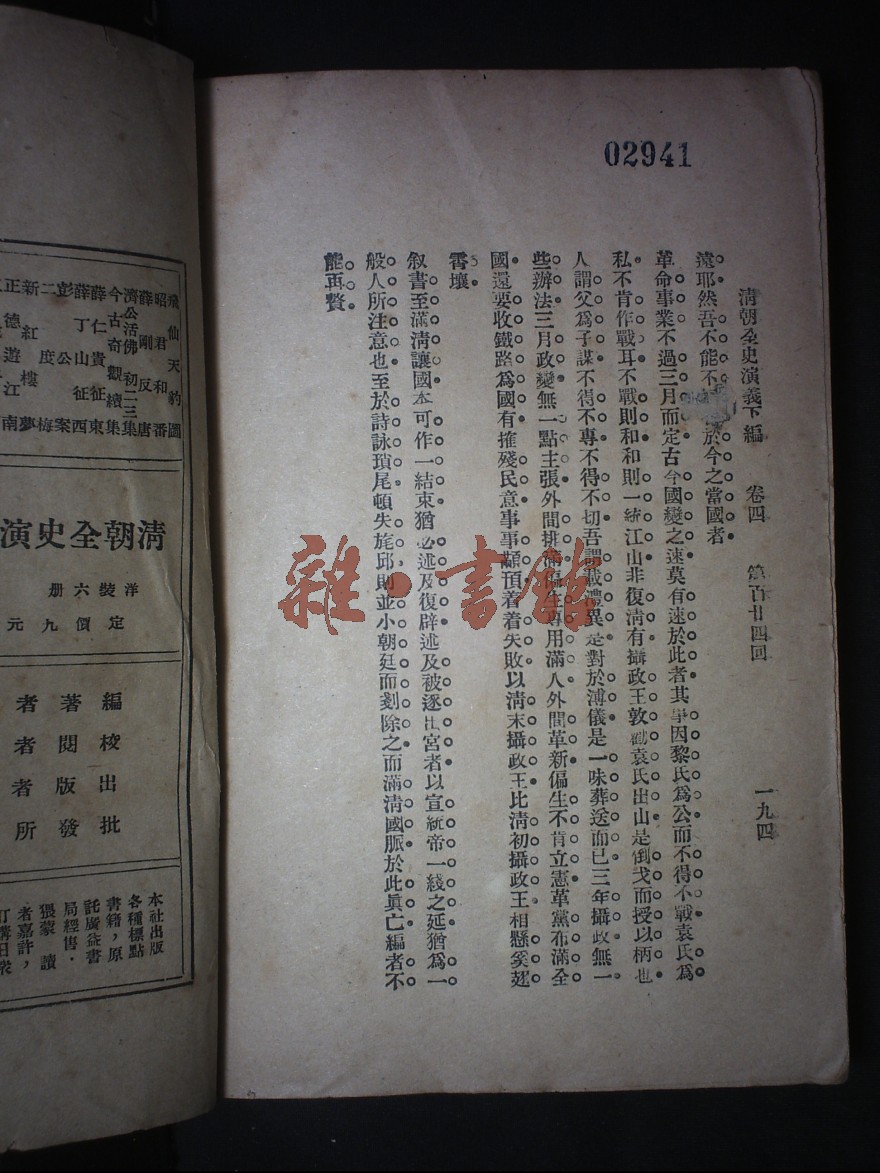 02941
清朝全史演義下編 卷四 第百廿四回 一九四
遠耶。然吾不能不 於今之當國者。
革命事業不過三月而定。古今國變之速。莫有速於此者。其事因黎氏爲公而不得不戰。袁氏爲
私。不肯作戰耳。不戰則和。和則一統江山非復清有。攝政王敦勸袁氏出山。是倒戈而授以柄也。
人謂父爲子謀。不得不專。不得不切。吾謂載灃異是。對於溥儀。是一味葬送而已。三年攝政。無一
些辦法。三月政變。無一點主張。外間排滿。偏生專用滿人。外間革新。偏生不肯立憲。革黨布滿全
國。還要收鐵路爲國有。摧殘民意。事事顢頇。着着失敗。以清末攝政王比清初攝政王。相懸奚趐
霄壤。
叙書至滿清讓國。本可作一結束。猶必述及復辟。述及被逐出宮者。以宣統帝一綫之延。猶爲一
般人所注意也。至於詩詠瑣尾。頓失旄邱。則並小朝廷而剗除之。而滿清國脈於此眞亡。編者不
能再贅。
雜·書館
飛仙天豹圖
昭君和番
薛剛反唐
濟公活佛初二三集
今古奇觀續集
薛仁貴征東
薛丁山征西
彭公案
二度梅
新紅樓夢
正德遊江南
清朝全史演
洋裝六册
定價九元
編著者
校閱者
出版者
批發所
本社出版
各種標點
書籍,原
託廣益書
局經售.
猥蒙讀
者嘉許,